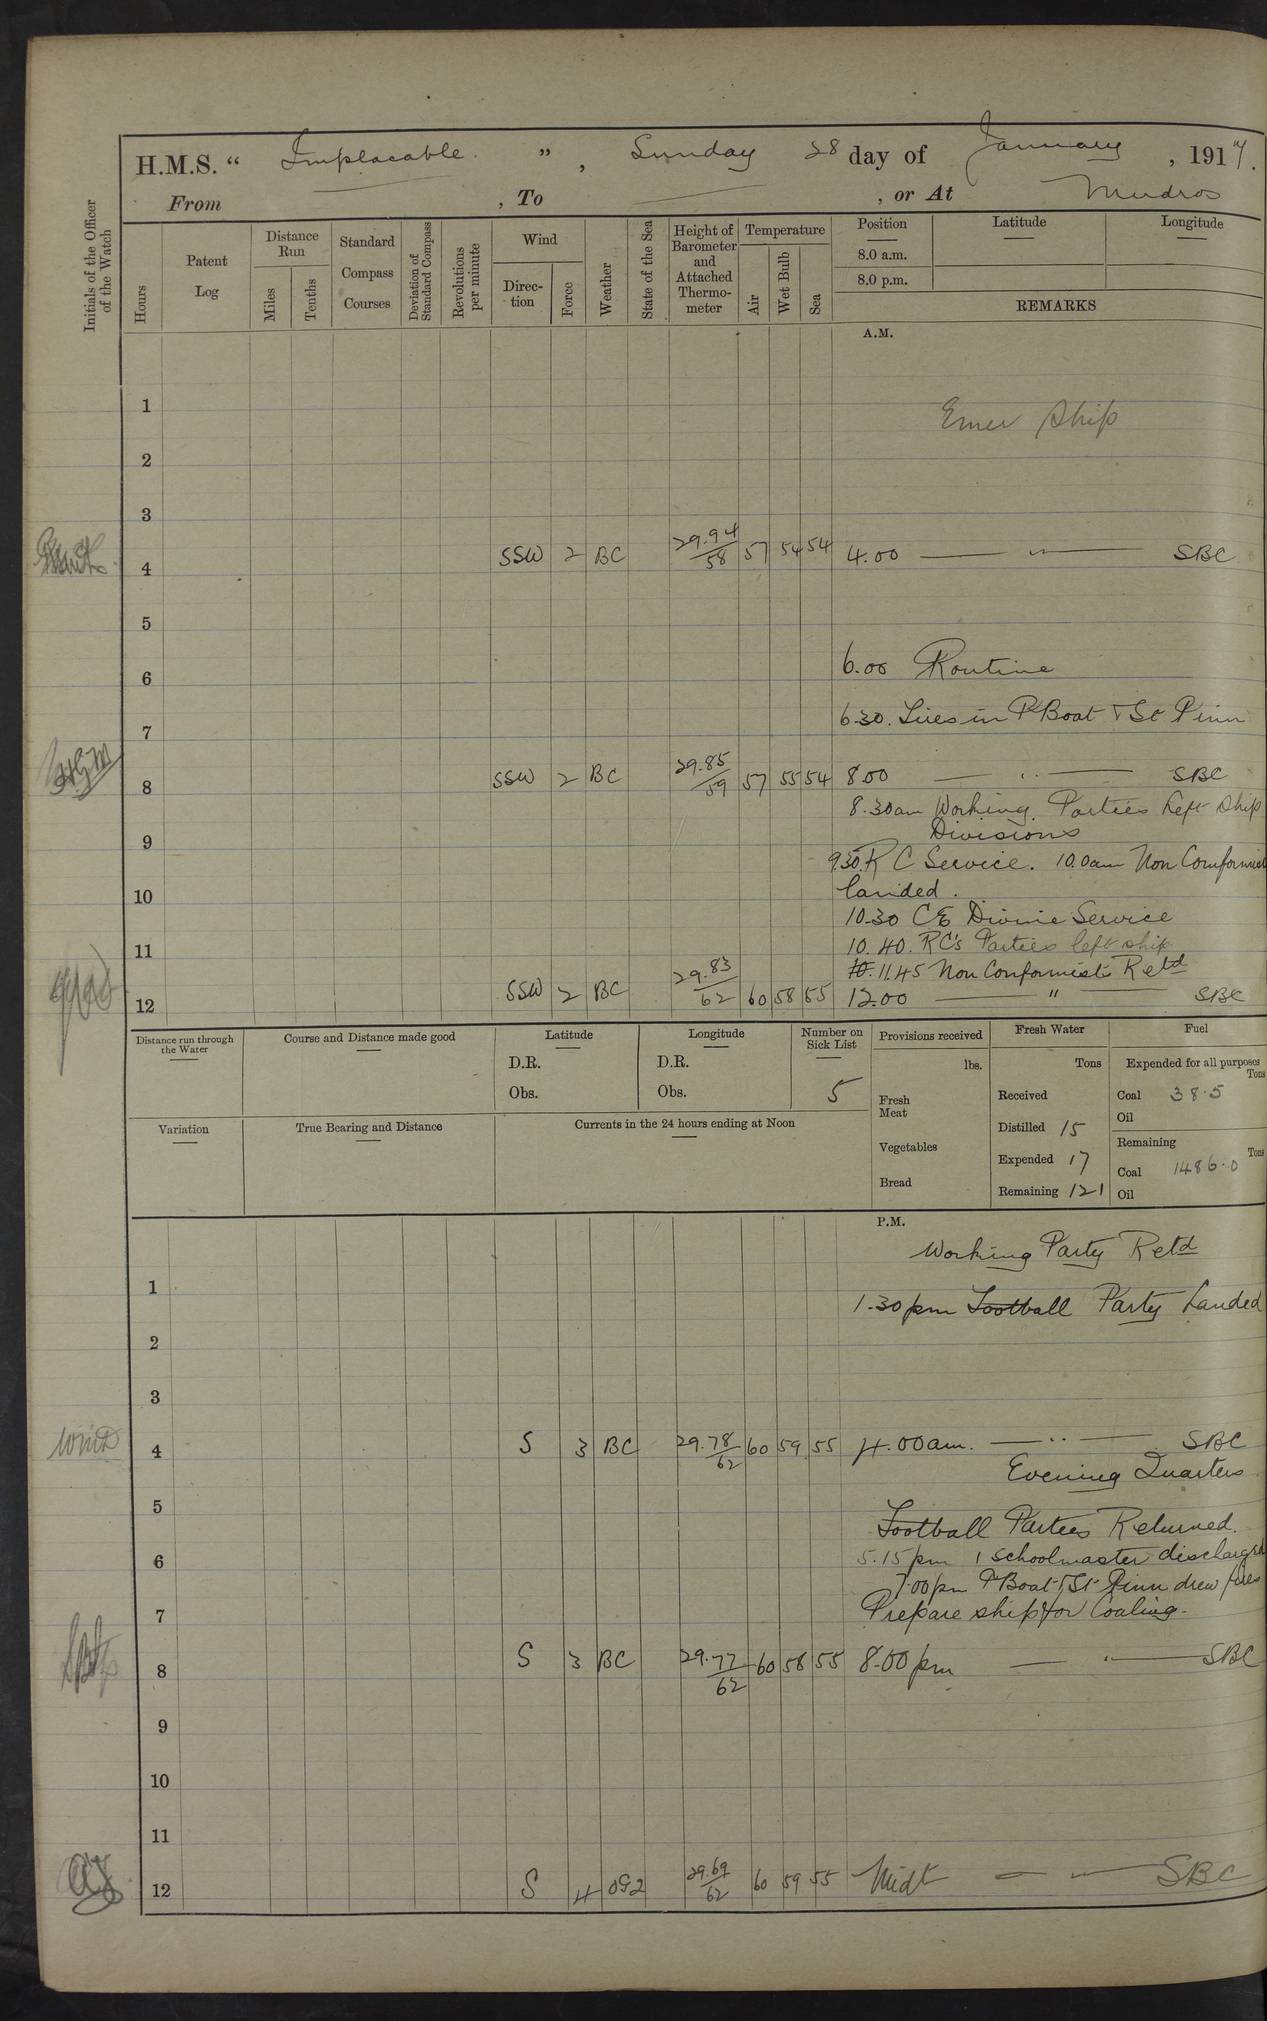 H.M.S. “ Implacable ” , Sunday 28 day of January , 1917.
From , To , or At Mudros
Initials of the Officer of the Watch
Hours
Patent Log
Distance Run
Miles
Tenths
Standard Compass Courses
Deviation of Standard Compass
Revolutions per minute
Wind
Direction
Force
Weather
State of the Sea
Height of Barometer and Attached Thermometer
Temperature
Air
Wet Bulb
Sea
Position Latitude Longitude
8.0 a.m.
8.0 p.m.
REMARKS
A.M.
1 Emer Ship
2
3
4 SSW 2 BC 29.94/58 57 54 54 4.00 — " — SBC
5
6.00 Routine
6
6.30. Fires in P Boat & St Pinn
7
8 SSW 2 BC 29.85/59 57 55 54 8.00 — " — SBC
8.30am Working Parties Left Ship
Divisions
9
9.30. R C Service. 10.0am Non Conformist
10 landed.
10.30 CE Divine Service
11 10.40. RC's Parties left ship
10. 11.45 Non Conformists Retd
12 SSW 2 BC 29.83/62 60 58 55 12.00 — " — SBC
Distance run through the Water
Course and Distance made good
Latitude
D.R.
Obs.
Longitude
D.R.
Obs.
Number on Sick List
5
Provisions received
lbs.
Fresh Meat
Vegetables
Bread
Fresh Water
Tons
Received
Distilled 15
Expended 17
Remaining 121
Fuel
Expended for all purposes
Tons
Coal 38.5
Oil
Remaining
Tons
Coal 1486.0
Oil
Variation
True Bearing and Distance
Currents in the 24 hours ending at Noon
P.M.
Working Party Retd
1 1.30pm Football Party Landed
2
3
4 S 3 BC 29.78/62 60 59 55 4.00am. — " — SBC
Evening Quarters
5
Football Parties Returned.
6 5.15pm 1 Schoolmaster discharged
7.00pm P Boat & St Pinn drew fires
7 Prepare ship for Coaling.
8 S 3 BC 29.77/62 60 58 55 8.00pm — " — SBC
9
10
11
12 S 4 OG2 29.69/62 60 59 55 Midt — " — SBC